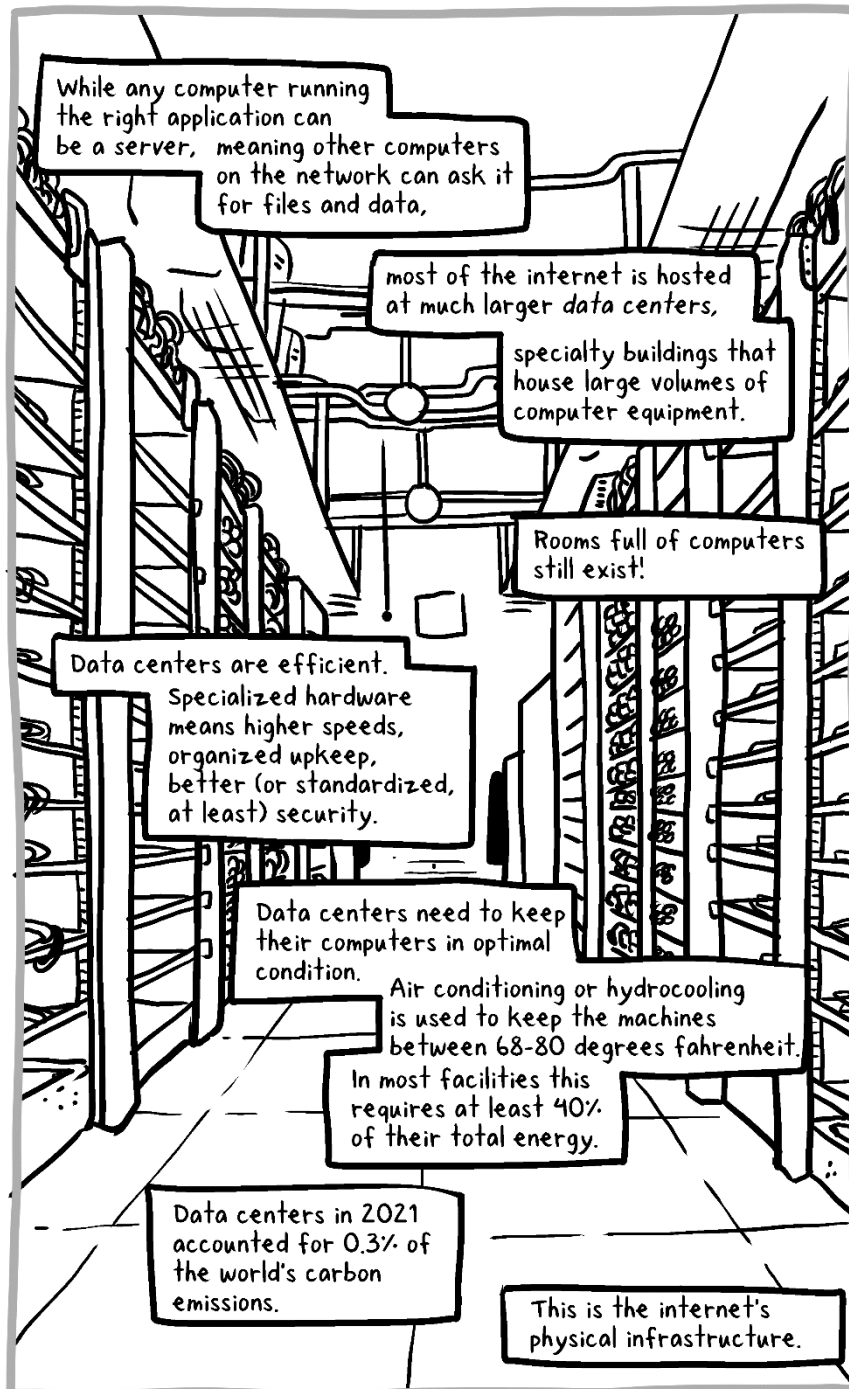 While any computer running
the right application can
be a server, meaning other computers
on the network can ask it
for files and data,
most of the internet is hosted
at much larger data centers,
specialty buildings that
house large volumes of
computer equipment.
Rooms full of computers
still exist!
Data centers are efficient.
Specialized hardware
means higher speeds,
organized upkeep,
better (or standardized,
at least) security.
Data centers need to keep
their computers in optimal
condition.
Air conditioning or hydrocooling
is used to keep the machines
between 68-80 degrees fahrenheit.
In most facilities this
requires at least 40%
of their total energy.
Data centers in 2021
accounted for 0.3% of
the world's carbon
emissions.
This is the internet's
physical infrastructure.